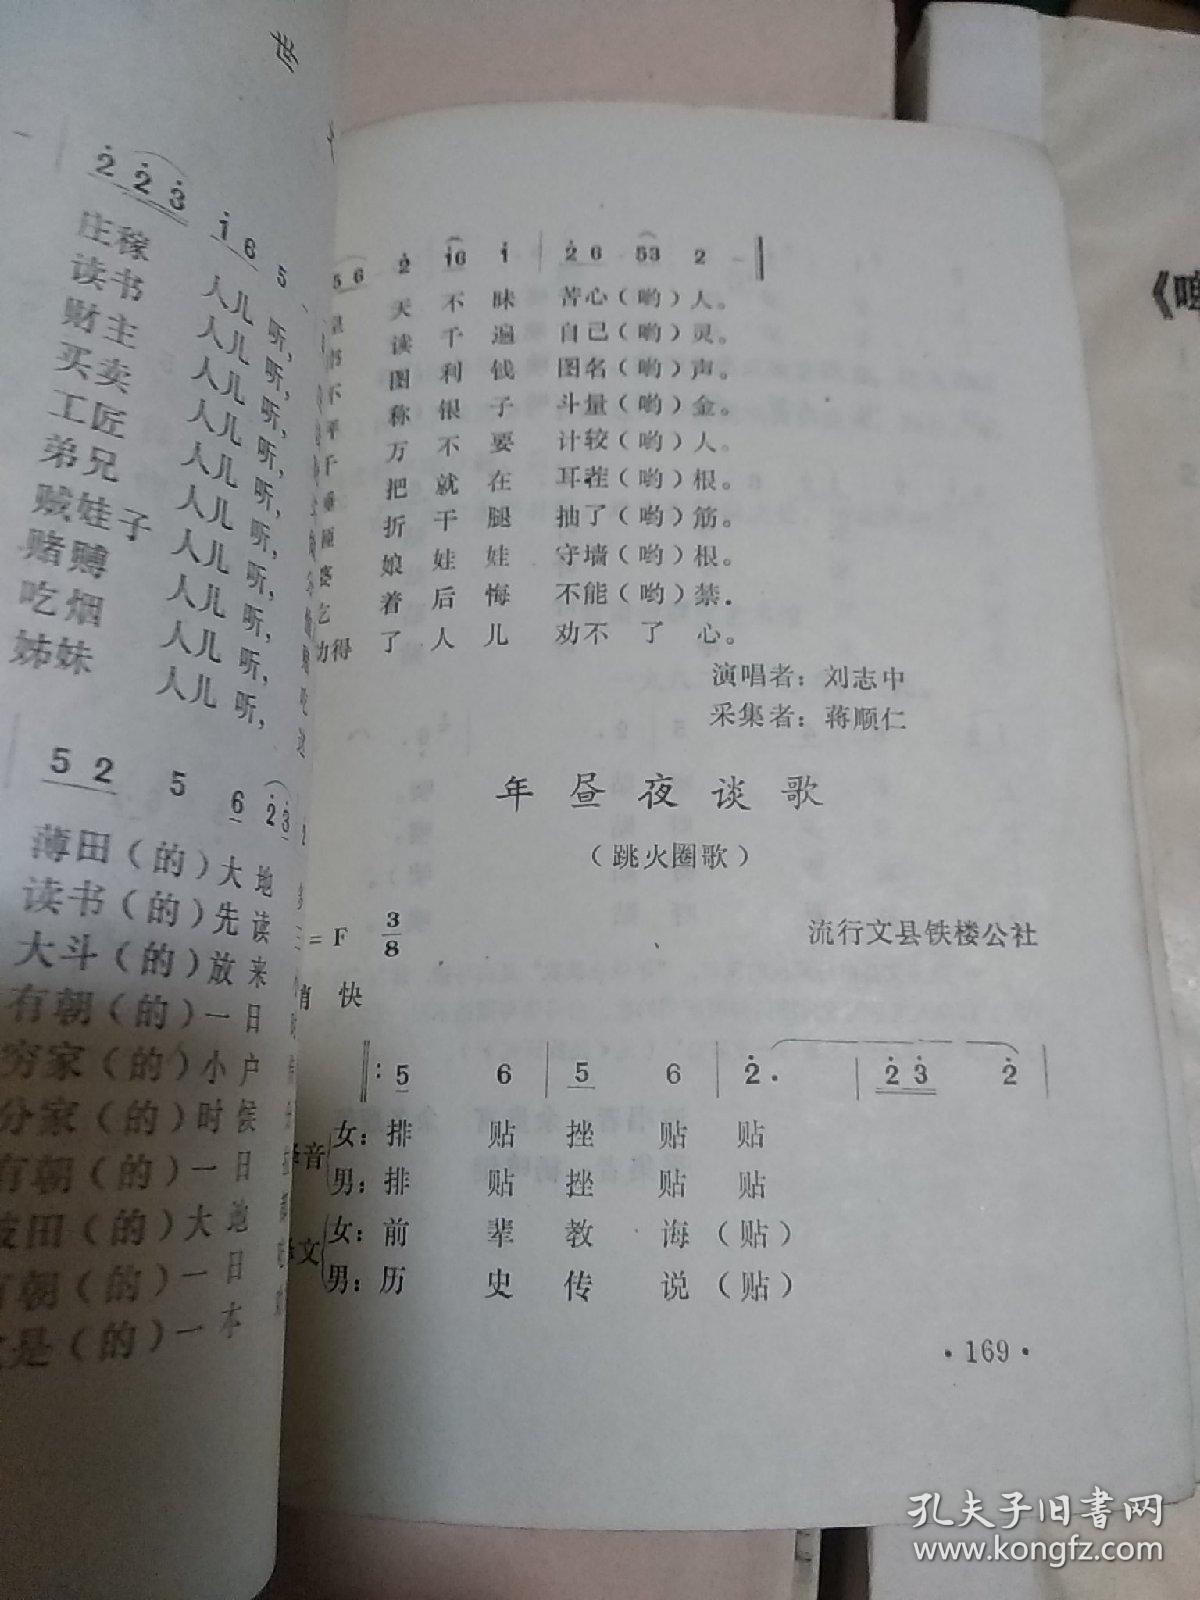 世
2 2 3 1 6 5
庄稼 人儿 听，
读书 人儿 听，
财主 人儿 听，
买卖 人儿 听，
工匠 人儿 听，
弟兄 人儿 听，
贼娃子 人儿 听，
赌赙 人儿 听，
吃烟 人儿 听，
姊妹 人儿 听，
5 2 5 6 2 3
薄田（的）大地
读书（的）先读
大斗（的）放来
有朝（的）一日
穷家（的）小户
分家（的）时候
有朝（的）一日
田（的）大地
有朝（的）一日
是（的）一本
5 6 2 1 6 1 | 2 6 5 3 2 - ‖
天不昧 苦心（哟）人。
书 读千遍 自己（哟）灵。
不 图利钱 图名（哟）声。
平 称银子 斗量（哟）金。
千 万不要 计较（哟）人。
把就在 耳茬（哟）根。
折干腿 抽了（哟）筋。
婆 娘娃娃 守墙（哟）根。
着后悔 不能（哟）禁．
劝得 了人儿 劝不了心。
演唱者：刘志中
采集者：蒋顺仁
年昼夜谈歌
（跳火圈歌）
= F 3/8 流行文县铁楼公社
稍 快
‖: 5 6 | 5 6 | 2 · | 2 3 2 |
译音 女：排 贴 挫 贴 贴
男：排 贴 挫 贴 贴
译文 女：前 辈 教 诲（贴）
男：历 史 传 说（贴）
·169·
《
孔夫子旧书网
www.kongfz.com